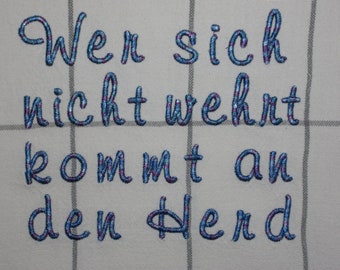 Wer sich
nicht wehrt
kommt an
den Herd